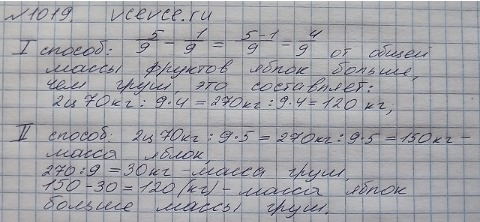 №1019. vcevce.ru
I способ: 5/9 - 1/9 = 5-1/9 = 4/9 от общей
массы фруктов яблок больше,
чем груш, это составляет:
2ц 70кг : 9·4 = 270кг : 9·4 = 120 кг;
II способ: 2ц 70кг : 9·5 = 270кг : 9·5 = 150кг -
масса яблок,
270 : 9 = 30кг - масса груш,
150 - 30 = 120 (кг) - масса яблок
больше массы груш.